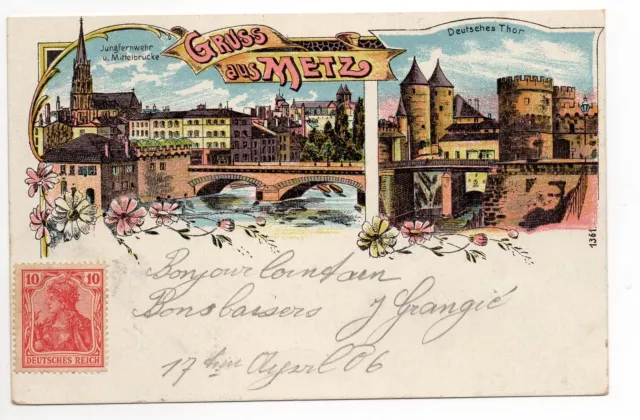 Jungfernwehr
u. Mittelbrücke
GRUSS
aus METZ
Deutsches Thor
1361
Bonjour lointain
Bons baisers J Grangié
17ten April 06
10 10
DEUTSCHES REICH